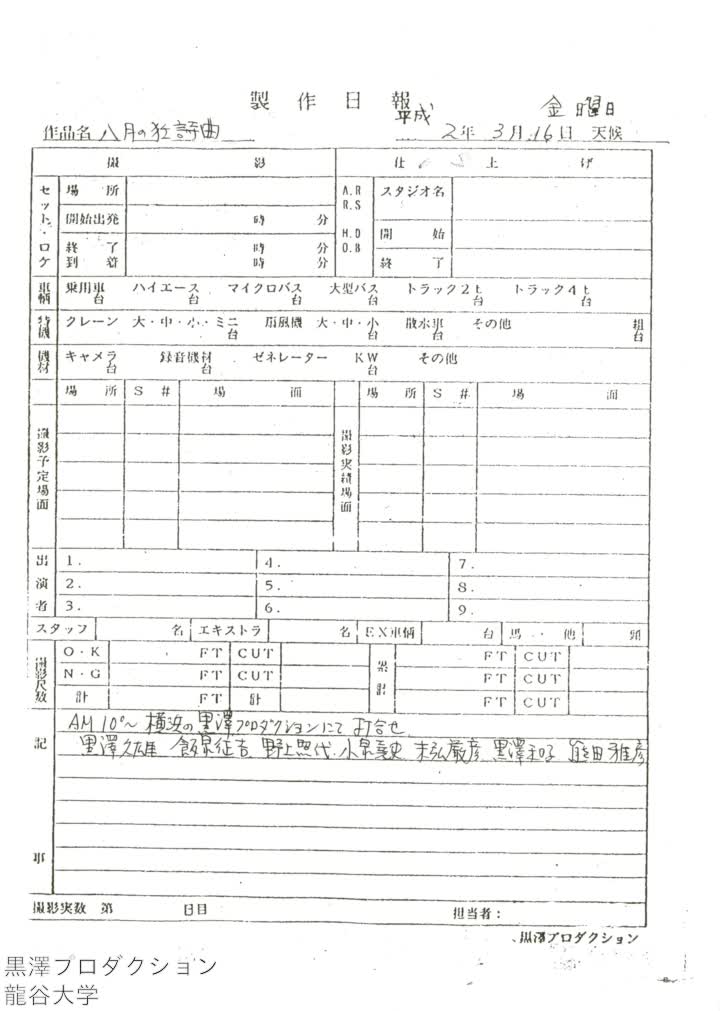 製作日報
作品名 八月の狂詩曲
平成 2年 3月 16日 金曜日 天候
撮影
仕上げ
セット・ロケ
場所
開始出発 時 分
終了 時 分
到着 時 分
A.R
R.S
H.D
O.B
スタジオ名
開始
終了
車輌
乗用車 台 ハイエース 台 マイクロバス 台 大型バス 台 トラック2t 台 トラック4t 台
特機
クレーン 大・中・小・ミニ 台 扇風機 大・中・小 台 散水車 台 その他 組 台
機材
キャメラ 台 録音機材 台 ゼネレーター KW 台 その他
撮影予定場面
場所 S# 場面
撮影実績場面
場所 S# 場面
出演者
1. 4. 7.
2. 5. 8.
3. 6. 9.
スタッフ 名 エキストラ 名 EX車輌 台 馬・他 頭
撮影尺数
O・K FT CUT
N・G FT CUT
計 FT 計
累計
FT CUT
FT CUT
FT CUT
記事
AM 10°~ 横浜の黒澤プロダクションにて打合せ
黒澤久雄 飯泉征吉 野上照代 小泉堯史 末弘厳彦 黒澤和子 熊田雅彦
撮影実数 第 日目
担当者:
黒澤プロダクション
黒澤プロダクション
龍谷大学